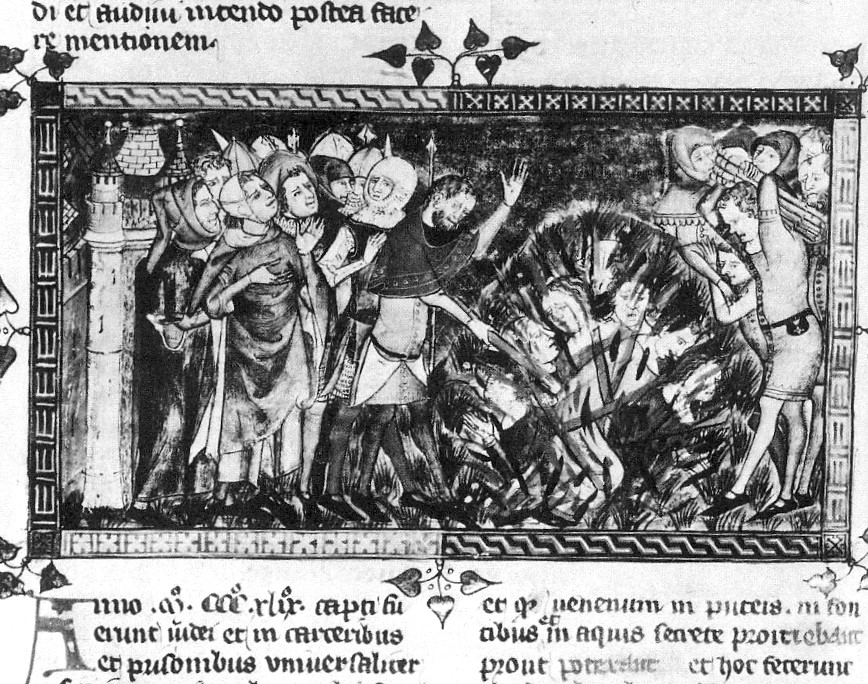 di et audiui intendo postea face
re mentionem.
Anno .Mo. CCCo. xlixo. capti fu
erunt iudei et in carceribus
et prisonibus vniuersaliter
et qz venenum in puteis. in fon
tibus et in aquis secrete proiciebant
prout poterant et hoc fecerunt